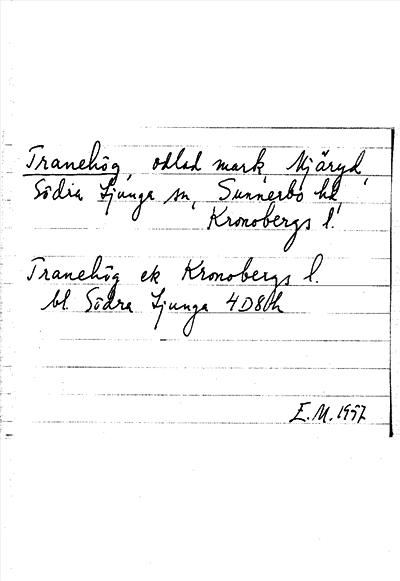 Tranehög, odlad mark, Mjäryd,
Södra Ljunga sn, Sunnerbo hd,
Kronobergs l.
Tranehög ek Kronobergs l.
bl. Södra Ljunga 4D8bh
E.M. 1957